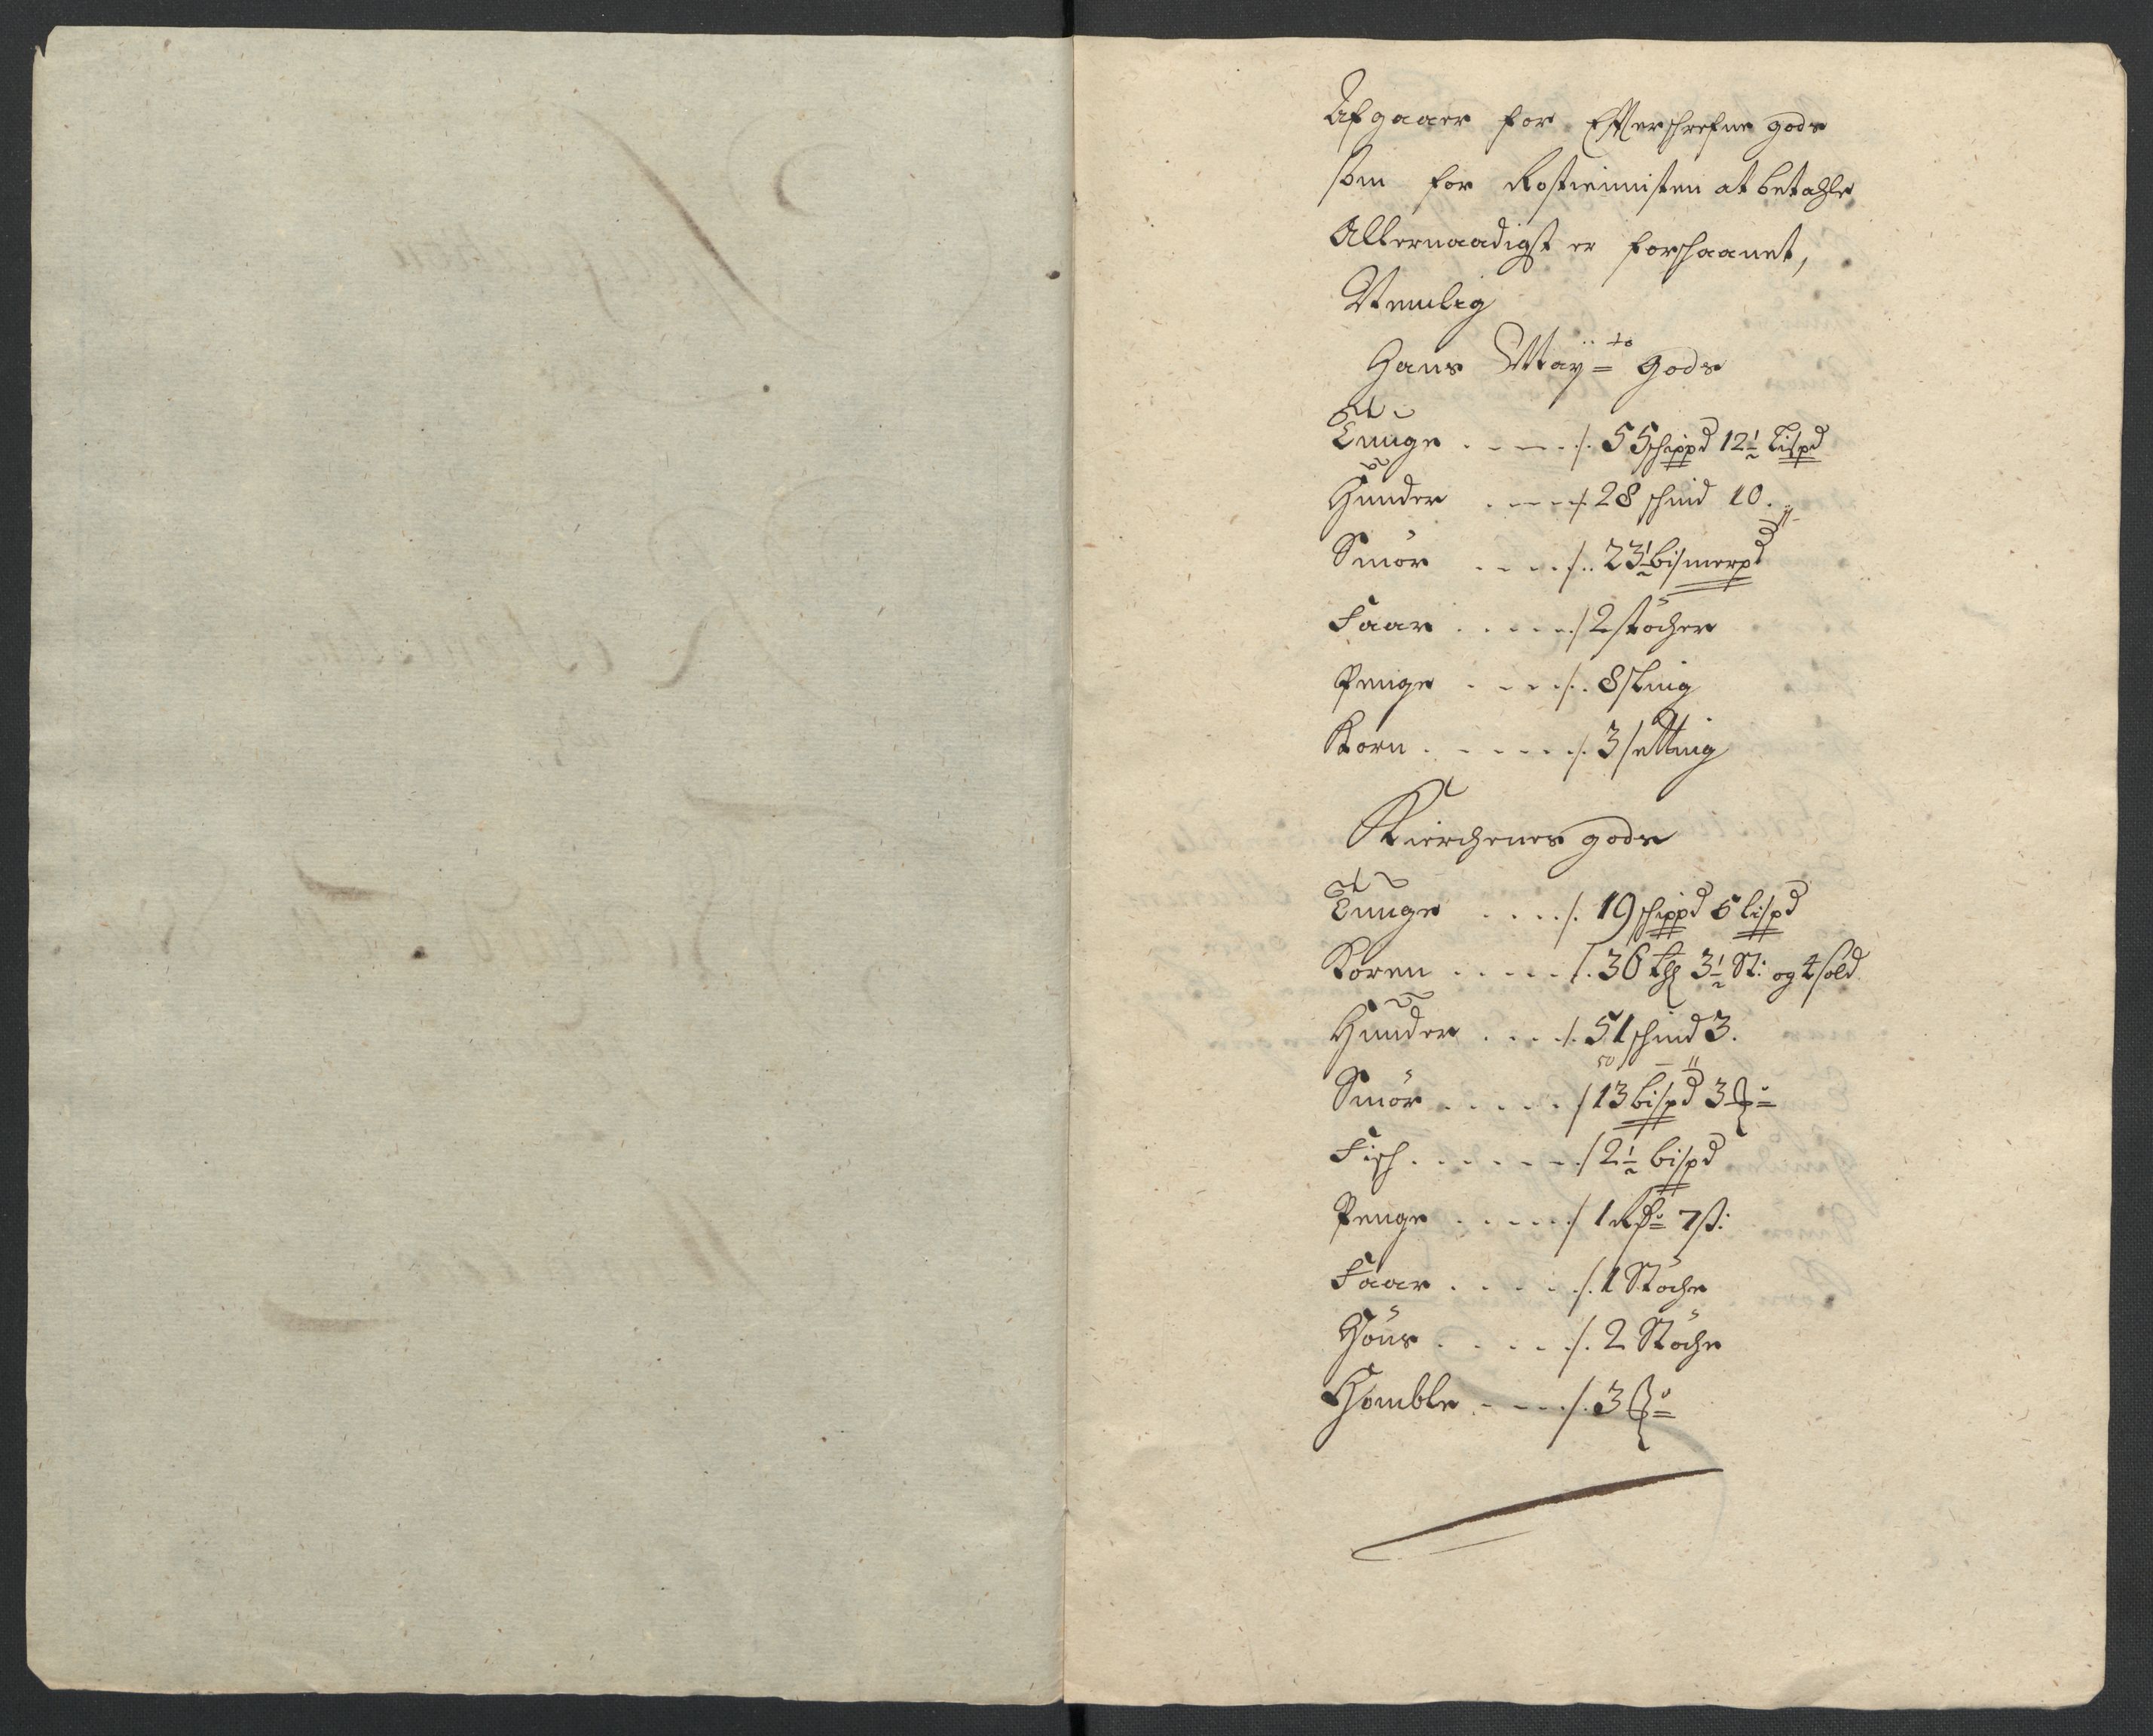 Afgaaer for Efterschrefne gods
som for Rostienisten at betahle
Allernaadigst er forschaanet,
Nemlig
Hans May:ts Gods
Tunge . . . . /. 55 schippd 12½ Lispd
Huuder . . . . /. 28 schind 10.
Smör . . . . /. 23½ bismerpd
Faar . . . . . / 2 støcher
Penge . . . . /. 8 sking
Korn . . . . . /. 3 setting
Kierchenes gods
Tunge . . . . /. 19 schippd 6 lispd
Koren . . . . . /. 36 thr 3½ St: og 4 sold
Huuder . . . . /. 51 schind 3.
Smör . . . . . / 13 bispd 3 ℔
Fisch . . . . . . / 2½ bispd
Penge . . . . . / 1 Rdr 7 ß:
Faar . . . . . /. 1 Støche
Høns . . . . . /. 2 Støche
Homble . . . . /. 3 ℔